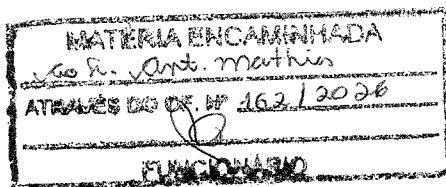 MATÉRIA ENCAMINHADA
Ao Sr. Ant. Mathias
ATRAVÉS DO OF. Nº 162/2026
FUNCIONÁRIO